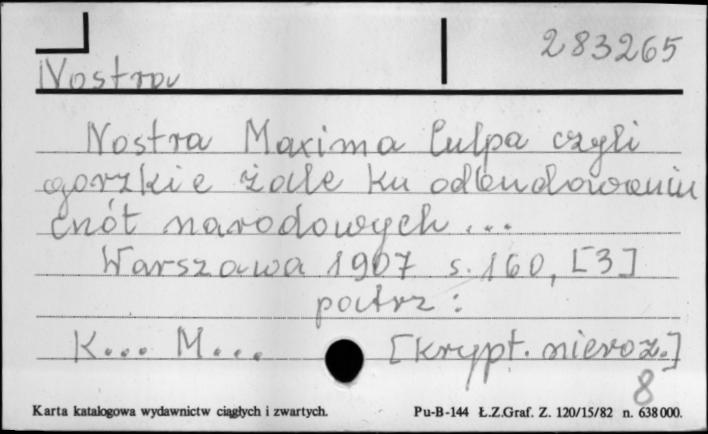 283265
Nostra
Nostra Maxima Culpa czyli
gorzkie żale ku odbudowaniu
cnót narodowych ...
Warszawa 1907 s. 160, [3]
patrz :
K... M... [krypt. nieroz.]
8
Karta katalogowa wydawnictw ciągłych i zwartych. Pu-B-144 Ł.Z.Graf. Z. 120/15/82 n. 638000.